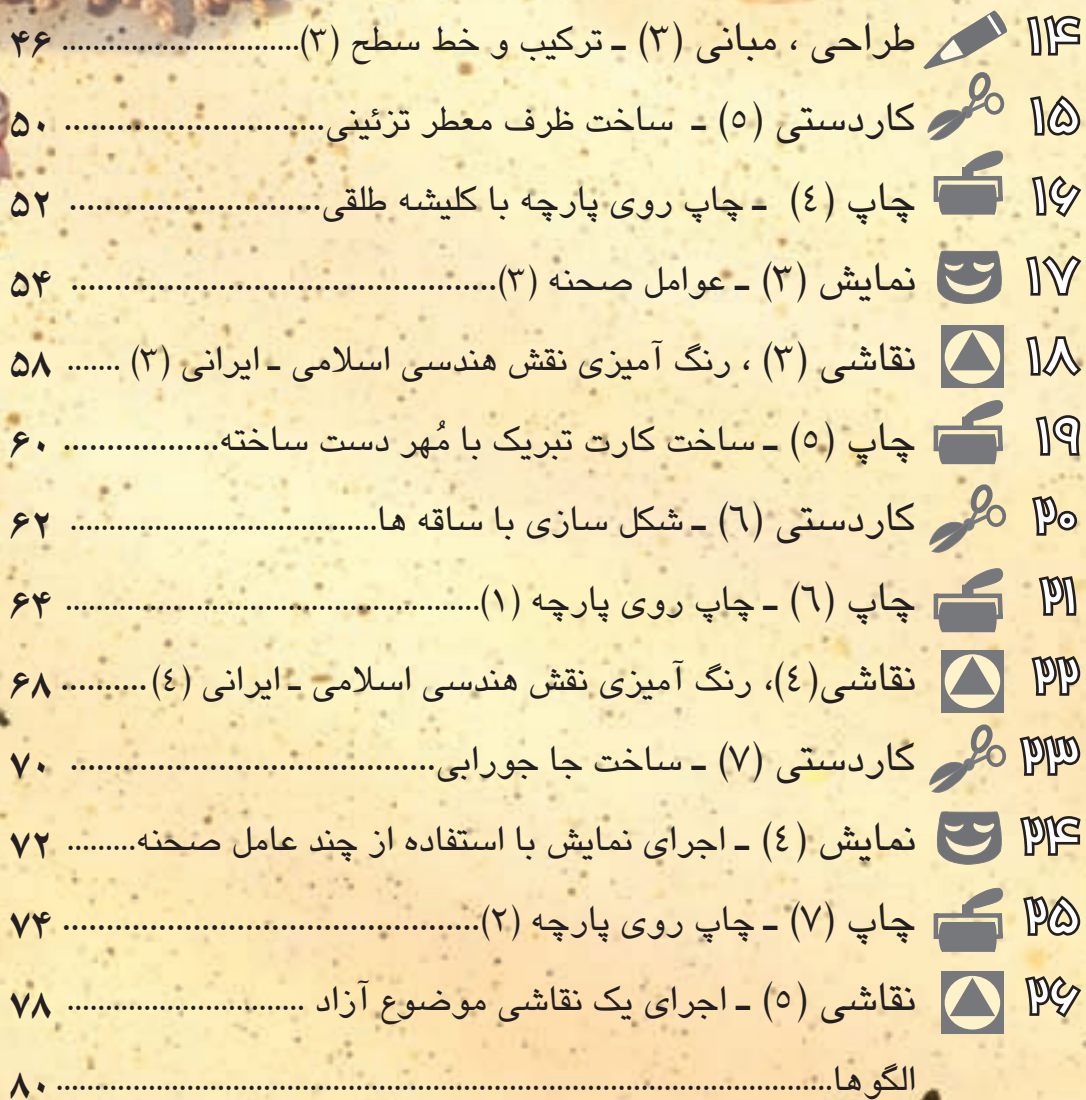 ۱۴ طراحی ، مبانی (۳) ـ ترکیب و خط سطح (۳)............................ ۴۶
۱۵ کاردستی (٥) ـ ساخت ظرف معطر تزئینی............................ ۵۰
۱۶ چاپ (٤) ـ چاپ روی پارچه با کلیشه طلقی........................... ۵۲
۱۷ نمایش (۳) ـ عوامل صحنه (۳).............................................. ۵۴
۱۸ نقاشی (۳) ، رنگ آمیزی نقش هندسی اسلامی ـ ایرانی (۳) ....... ۵۸
۱۹ چاپ (٥) ـ ساخت کارت تبریک با مُهر دست ساخته................. ۶۰
۲۰ کاردستی (٦) ـ شکل سازی با ساقه ها................................. ۶۲
۲۱ چاپ (٦) ـ چاپ روی پارچه (۱)............................................. ۶۴
۲۲ نقاشی(٤)، رنگ آمیزی نقش هندسی اسلامی ـ ایرانی (٤).......... ۶۸
۲۳ کاردستی (۷) ـ ساخت جا جورابی....................................... ۷۰
۲۴ نمایش (٤) ـ اجرای نمایش با استفاده از چند عامل صحنه......... ۷۲
۲۵ چاپ (۷) ـ چاپ روی پارچه (۲)............................................. ۷۴
۲۶ نقاشی (٥) ـ اجرای یک نقاشی موضوع آزاد .......................... ۷۸
الگو ها.................................................................................. ۸۰